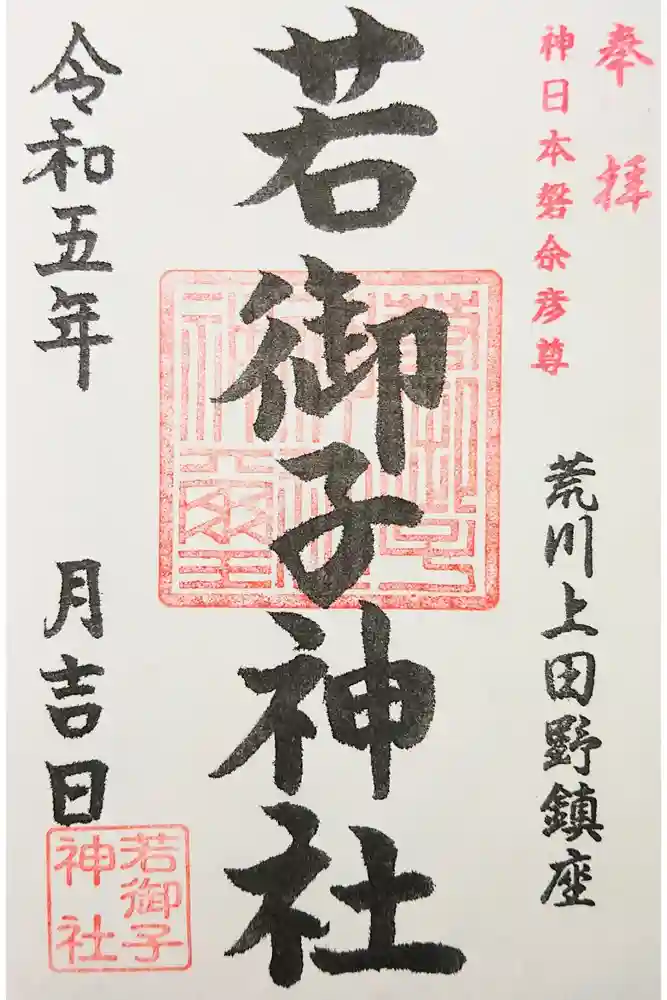 奉拝
神日本磐余彦尊
荒川上田野鎮座
若御子神社
令和五年　月吉日
若御子
神社